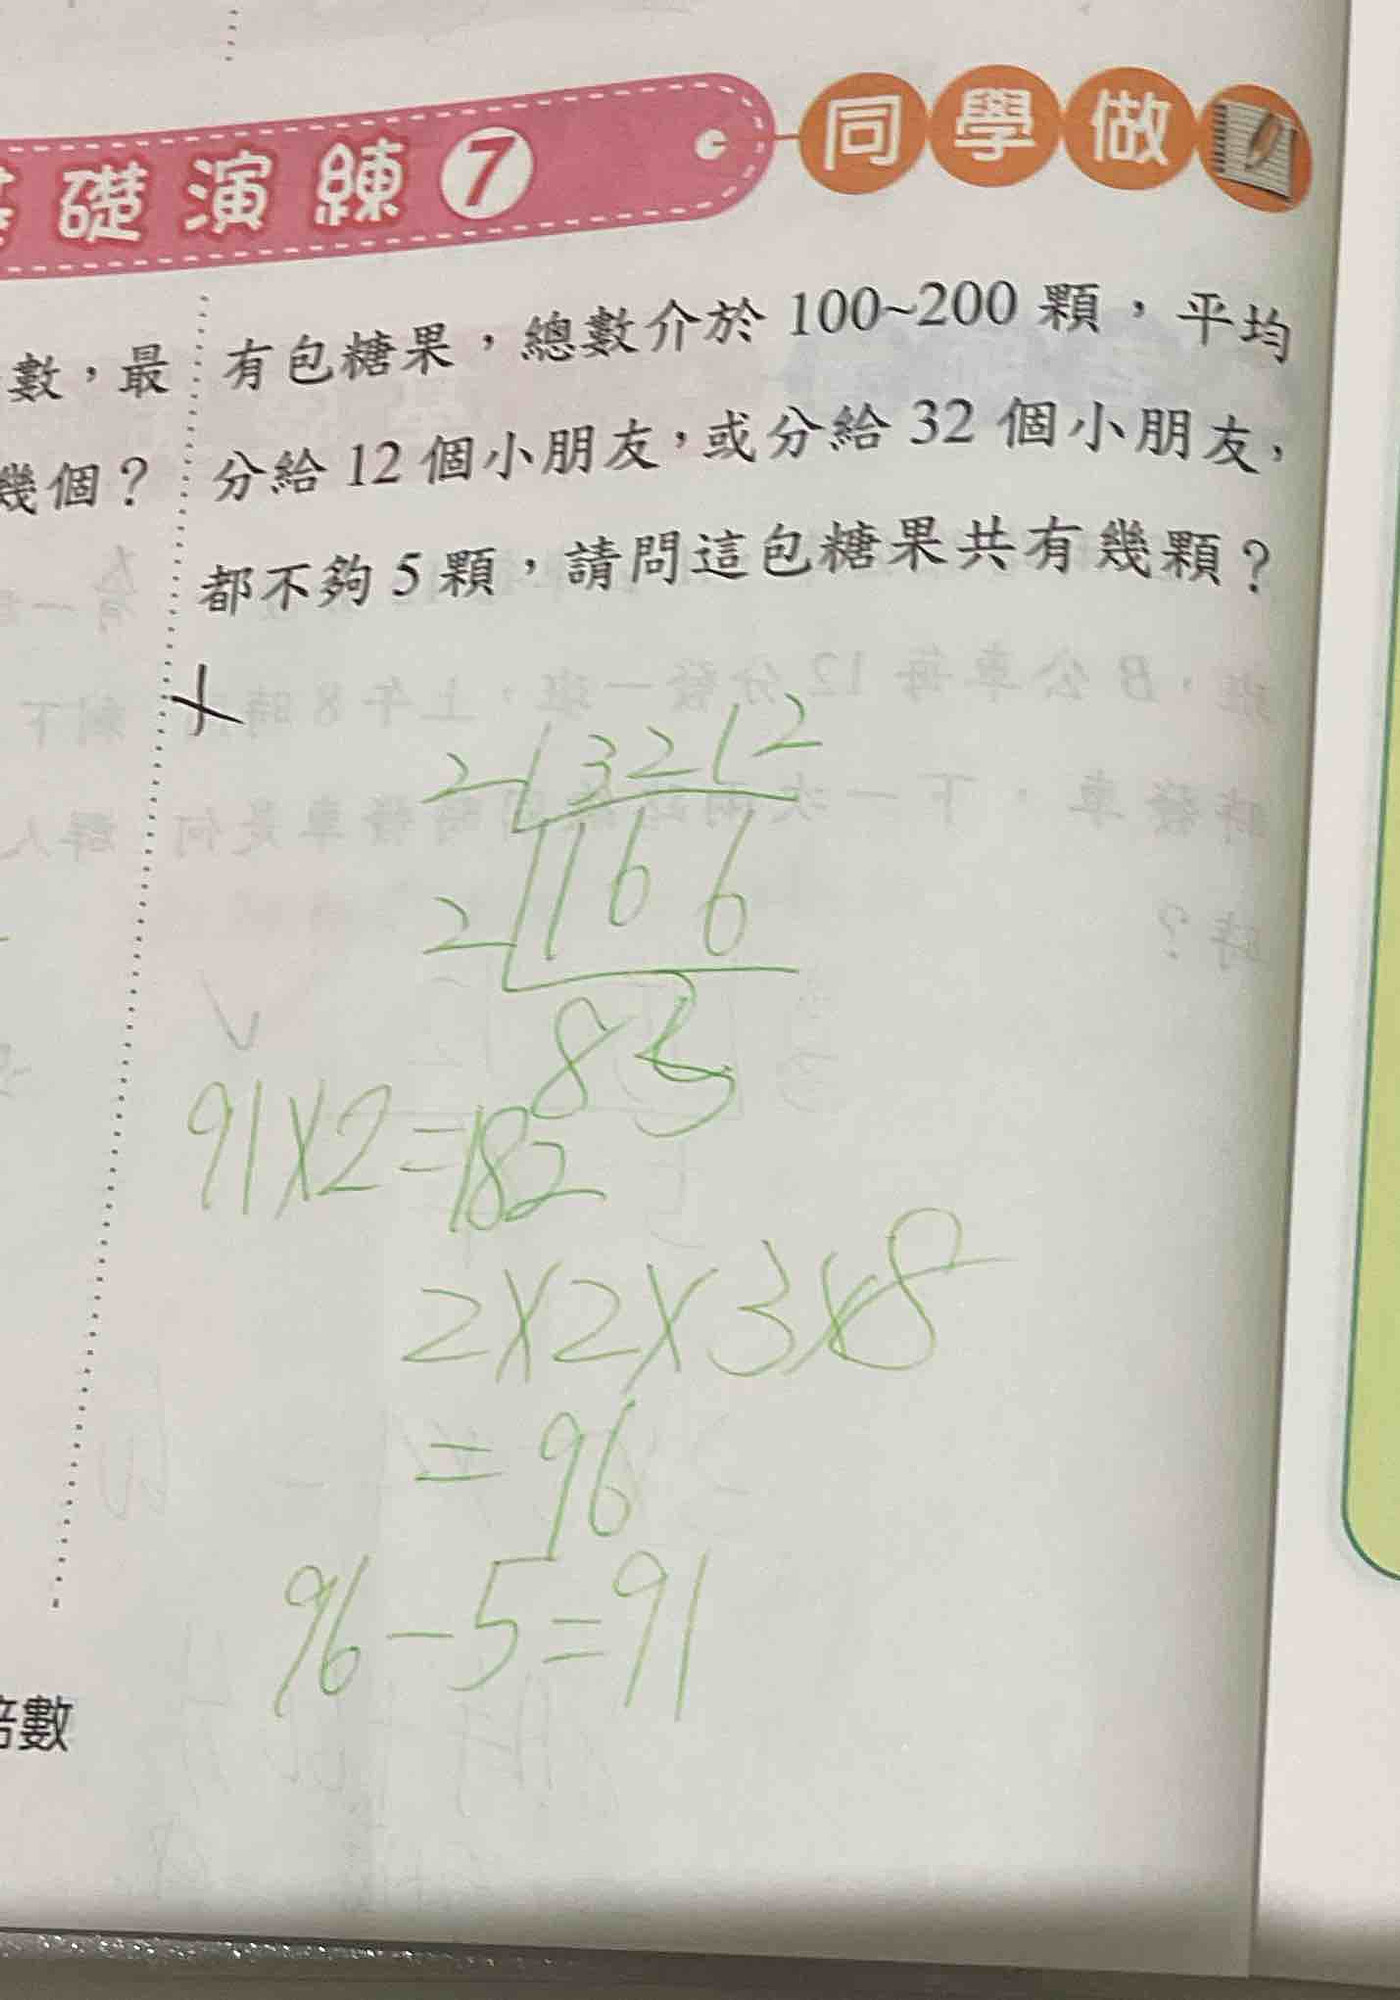 礎演練7 同學做
數，最
幾個？
有包糖果，總數介於 100~200 顆，平均
分給 12 個小朋友，或分給 32 個小朋友，
都不夠 5 顆，請問這包糖果共有幾顆？
2 32 12
2 16 6
8 3
91×2=182
2×2×3×8
=96
96-5=91
倍數